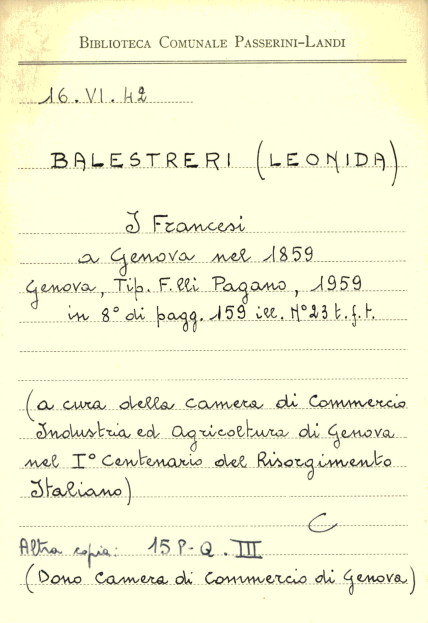 BIBLIOTECA COMUNALE PASSERINI-LANDI
16.VI.42
BALESTRERI (LEONIDA)
I Francesi
a Genova nel 1859
Genova, Tip. F.lli Pagano, 1959
in 8° di pagg. 159 ill. N° 23 t.f.t.
(a cura della Camera di Commercio
Industria ed Agricoltura di Genova
nel I° Centenario del Risorgimento
Italiano)
C
Altra copia: 15 P-Q. III
(Dono Camera di Commercio di Genova)